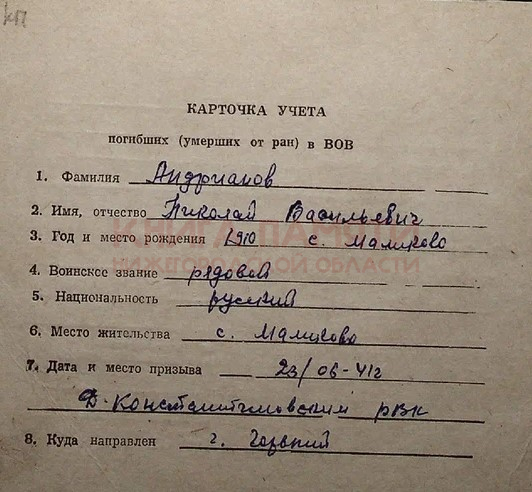 кп
КАРТОЧКА УЧЕТА
погибших (умерших от ран) в ВОВ
1. Фамилия Андрианов
2. Имя, отчество Николай Васильевич
КНИГА ПАМЯТИ
3. Год и место рождения 1910 с. Маликово
НИЖЕГОРОДСКОЙ ОБЛАСТИ
4. Воинское звание рядовой
5. Национальность русский
6. Место жительства с. Маликово
7. Дата и место призыва 23/06-41г
Д-Константиновским РВК
8. Куда направлен г. Горький